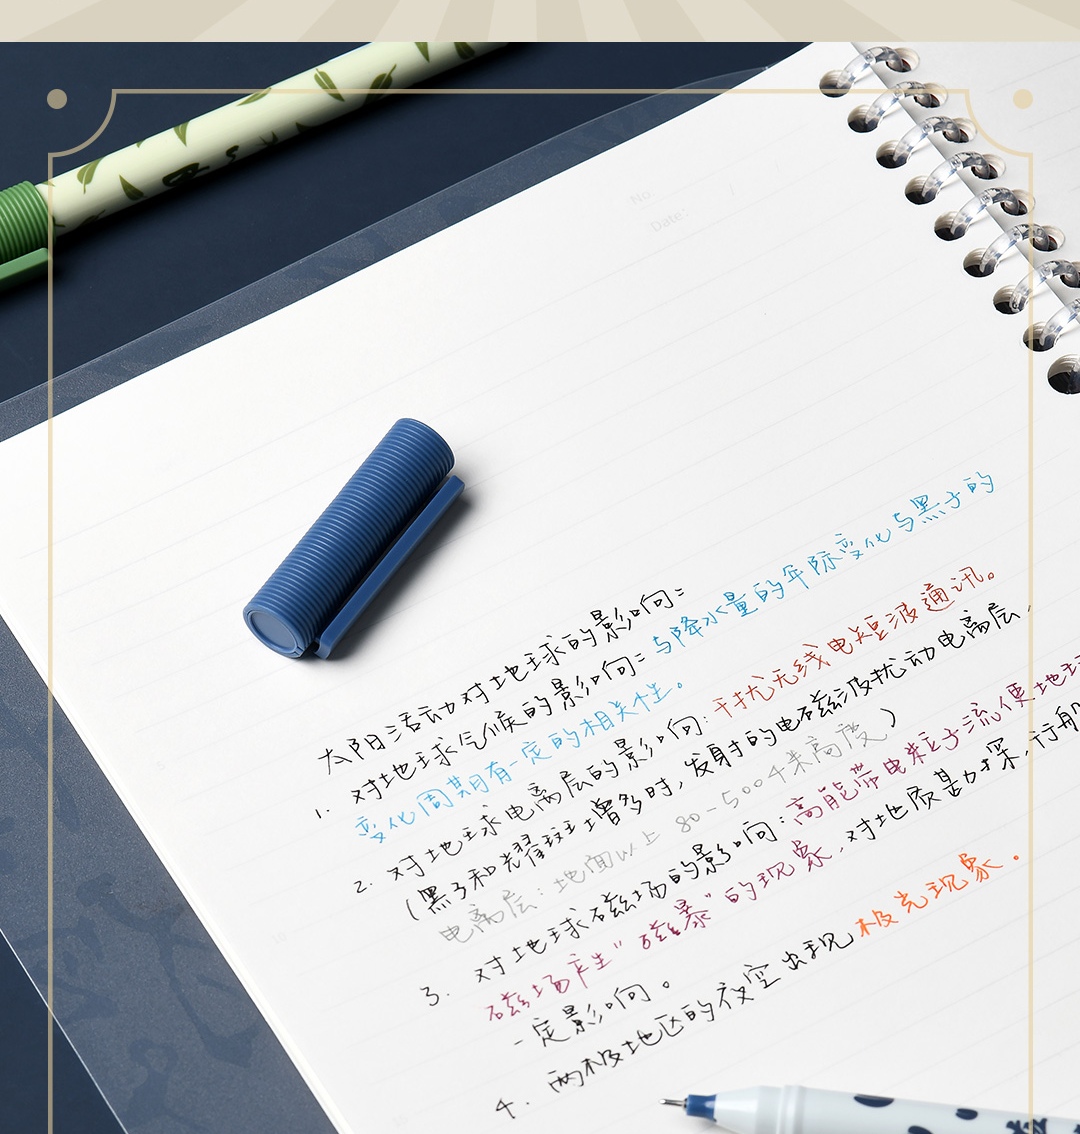 No
Date:
太阳活动对地球的影响:
1. 对地球气候的影响: 与降水量的年际变化与黑子的
变化周期有一定的相关性。
2. 对地球电离层的影响: 干扰无线电短波通讯。
(黑子和耀斑增多时,发射的电磁波扰动电离层.
电离层:地面以上 80-500千米高度)
3. 对地球磁场的影响:高能带电粒子流使地球
磁场产生"磁暴"的现象.对地质勘探.行船
一定影响。
4. 两极地区的夜空出现极光现象。